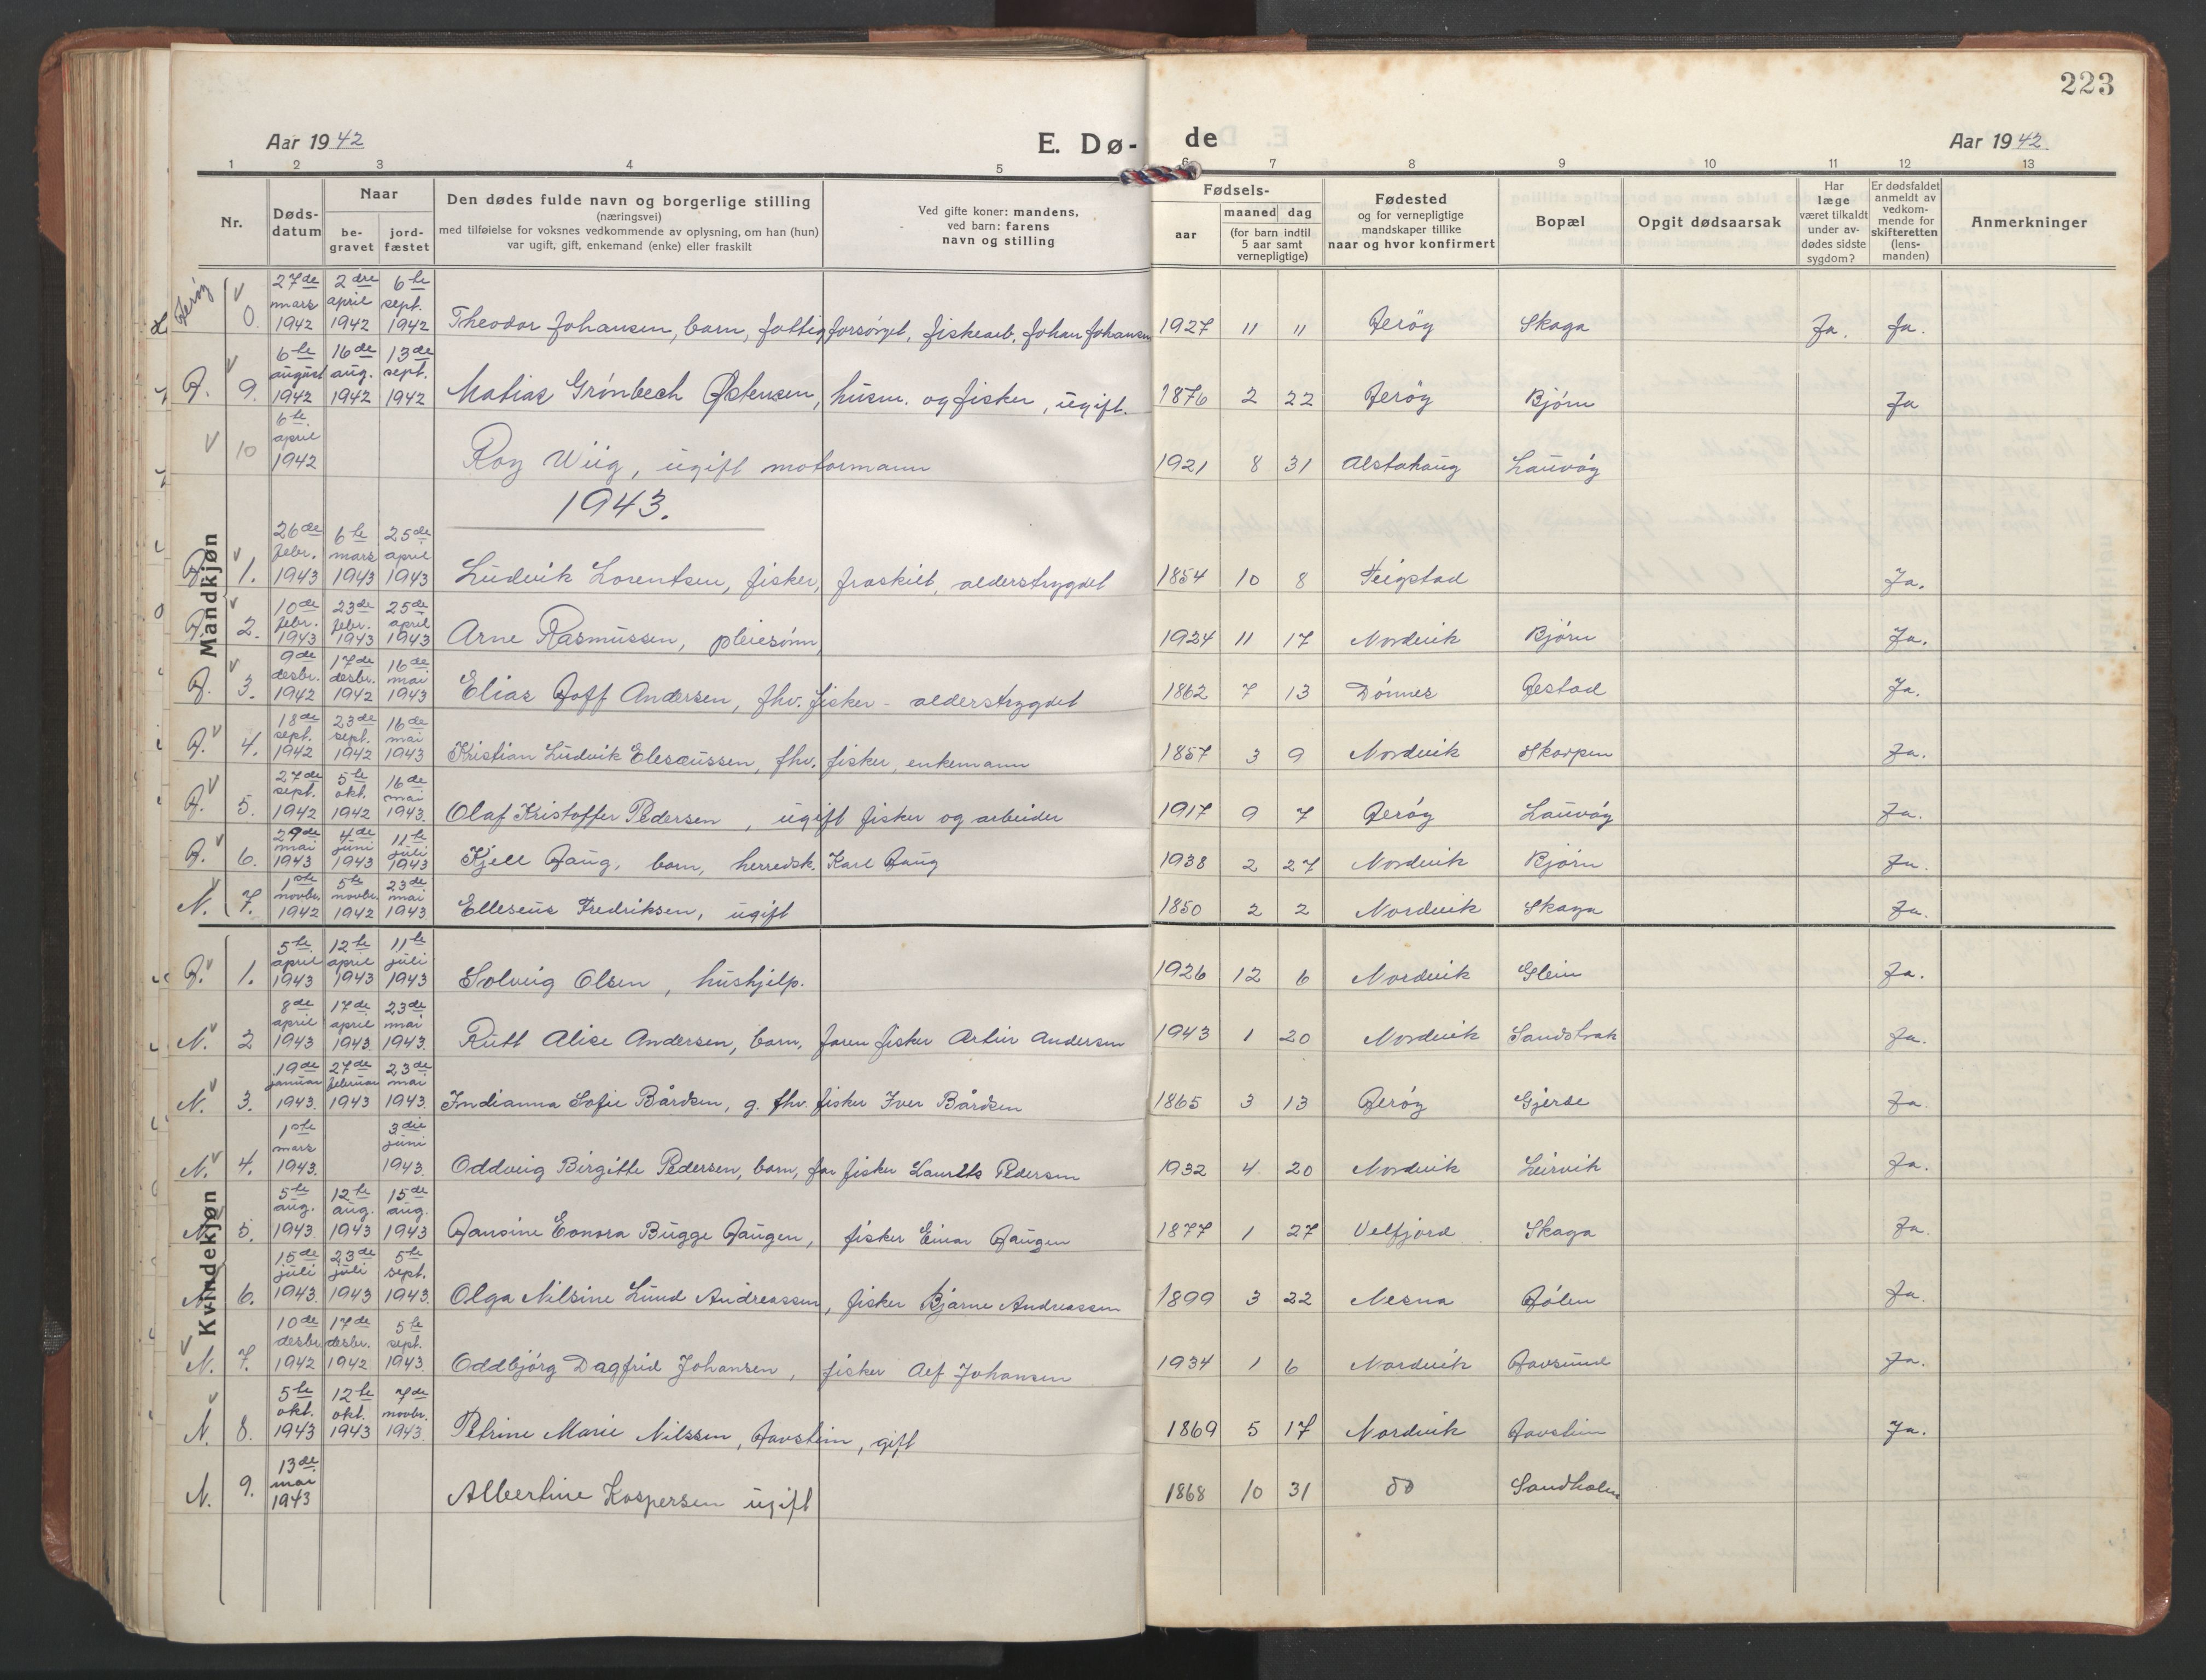 223
Aar 1942 E. Dø- de Aar 1942
1 2 3 4 5 6 7 8 9 10 11 12 13
Nr. Døds-datum Naar be-gravet jord-fæstet Den dødes fulde navn og borgerlige stilling (næringsvei) med tilføielse for voksnes vedkommende av oplysning, om han (hun) var ugift, gift, enkemand (enke) eller fraskilt Ved gifte koner: mandens, ved barn: farens navn og stilling Fødsels- aar maaned dag (for barn indtil 5 aar samt vernepligtige) Fødested og for vernepligtige mandskaper tillike naar og hvor konfirmert Bopæl Opgit dødsaarsak Har læge været tilkaldt under av-dødes sidste sygdom? Er dødsfaldet anmeldt av vedkom-mende for skifteretten (lens-manden) Anmerkninger
Herøy 0. 27de mars 1942 2dre april 1942 6te sept. 1942 Theodor Johansen, barn, fattigforsørget, fiskearb. Johan Johansen 1927 11 11 Herøy Skaga Ja. Ja.
H. 9. 6te august 1942 16de aug. 1942 13de sept. 1942 Matias Grønbech Østensen, husm. og fisker, ugift. 1876 2 22 Herøy Bjørn Ja
10 6te april 1942 Roy Wiig, ugift motormann 1921 8 31 Alstahaug Lauvøy
1943.
Mandkjøn
H. 1. 26de febr. 1943 6te mars 1943 25de april 1943 Ludvik Lorentsen, fisker, fraskilt, alderstrygdet 1854 10 8 Feigstad Ja.
H. 2. 10de febr. 1943 23de febr. 1943 25de april 1943 Arne Rasmussen, pleiesønn, 1924 11 17 Nordvik Bjørn Ja.
H. 3. 9de desbr. 1942 17de desbr. 1942 16de mai 1943 Elias Hoff Andersen, fhv. fisker - alderstrygdet 1862 7 13 Dønnes Hestad Ja.
H. 4. 18de sept. 1942 23de sept. 1942 16de mai 1943 Kristian Ludvik Elesæussen, fhv. fisker, enkemann 1857 3 9 Nordvik Skorpen Ja.
H. 5. 27de sept. 1942 5te okt. 1942 16de mai 1943. Olaf Kristoffer Pedersen, ugift fisker og arbeider 1917 9 7 Herøy Lauvøy Ja.
H. 6. 29de mai 1943 4de juni 1943 11te juli 1943 Kjell Haug, barn, herredsk. Karl Haug 1938 2 27 Nordvik Bjørn Ja.
N. 7. 1ste novbr. 1942 5te novbr. 1942 23de mai 1943. Elleseus Fredriksen, ugift 1850 2 2 Nordvik Skaga Ja.
H. 1. 5te april 1943 12te april 1943 11te juli 1943 Solveig Olsen, hushjelp. 1926 12 6 Nordvik Glein Ja.
N. 2 8de april 1943 17de april 1943. 23de mai 1943. Rutt Alise Andersen, barn, faren fisker Artur Andersen 1943 1 20 Nordvik Sandstrak Ja.
N. 3. 19de januar 1943. 27de februar 1943 23de mai 1943. Indianna Sofie Bårdsen, g. fhv. fisker Iver Bårdsen 1865 3 13 Herøy Gjerde Ja.
N. 4. 1ste mars 1943. 3die juni 1943. Oddveig Birgitte Pedersen, barn, far fisker Laurits Pedersen 1932 4 20 Nordvik Leirvik Ja.
Kvindekjøn
N. 5. 5te aug. 1943. 12te aug. 1943 15de aug. 1943 Hansine Eonora Bugge Haugen, fisker Einar Haugen 1877 1 27 Velfjord Skaga Ja.
N. 6. 15de juli 1943. 23de juli 1943 5te sept. 1943. Olga Nilsine Lund Andreassen, fisker Bjarne Andreassen 1899 3 22 Nesna Hølen Ja.
N. 7. 10de desbr. 1942 17de desbr. 1942 5te sept. 1943. Oddbjørg Dagfrid Johansen, fisker Alf Johansen 1934 1 6 Nordvik Havsund Ja.
N. 8. 5te okt. 1943 12te okt. 1943 7de novbr. 1943. Petrine Marie Nilssen, Havstein, gift 1869 5 17 Nordvik Havstein Ja.
N. 9. 13de mai 1943 Albertine Kaspersen ugift 1868 10 31 do Sandholm